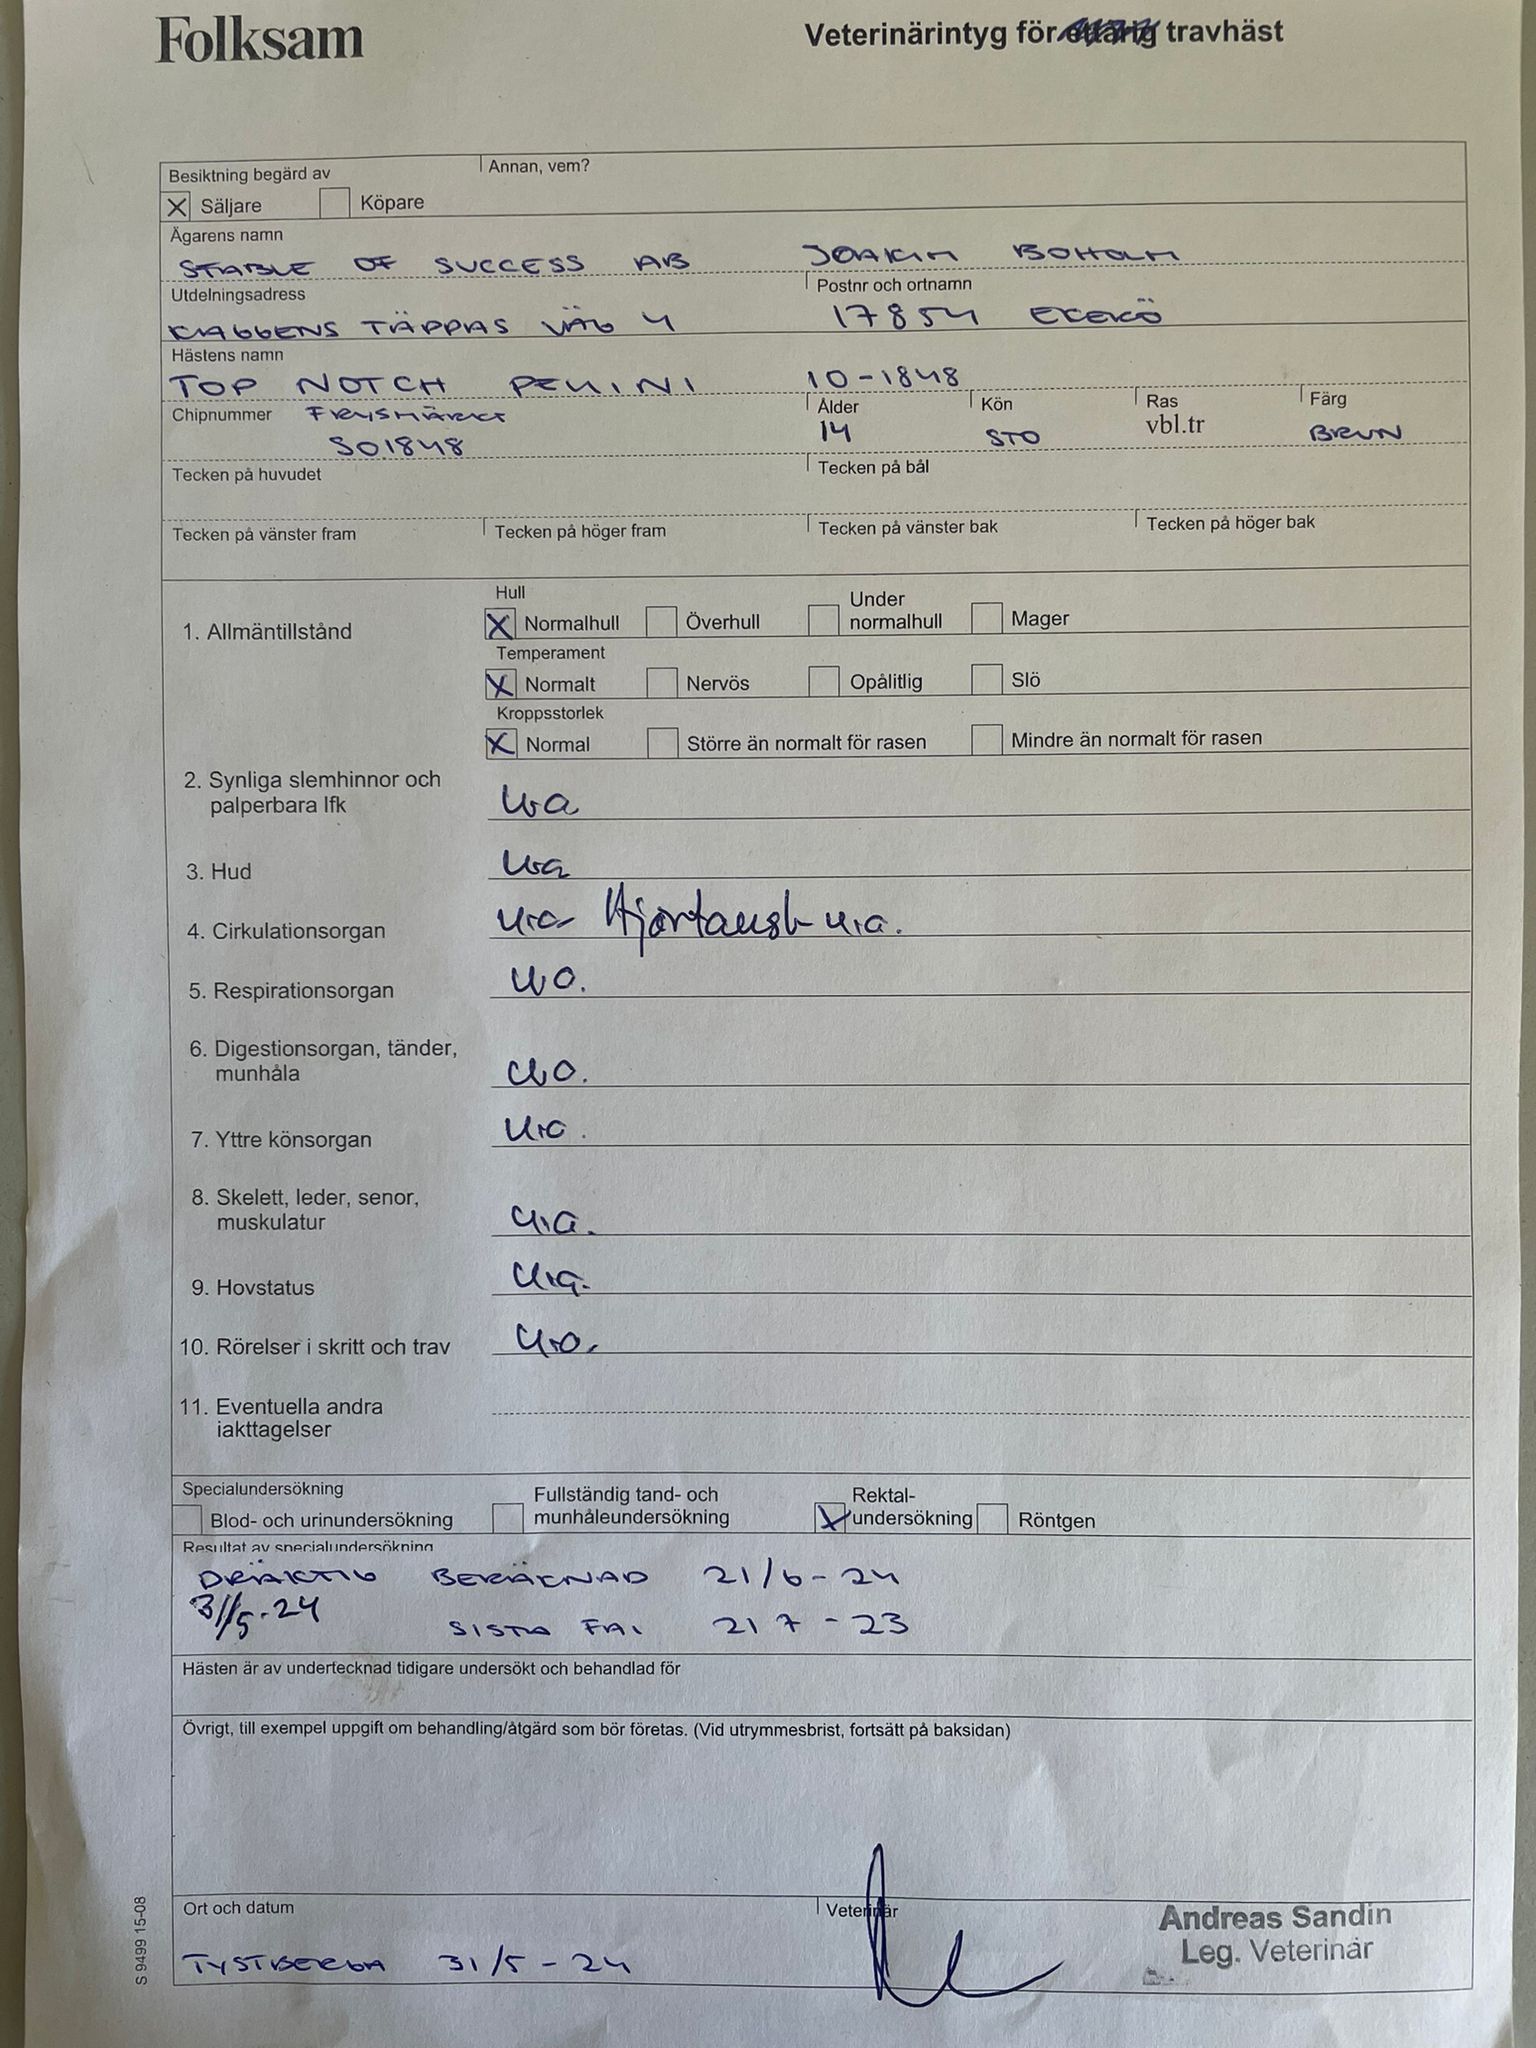 Folksam
Veterinärintyg för ettårig travhäst
Besiktning begärd av
Annan, vem?
X Säljare Köpare
Ägarens namn
STABLE OF SUCCESS AB JOAKIM BOHOLM
Utdelningsadress Postnr och ortnamn
KLAGGENS TÄPPAS VÄG 4 17854 EKERÖ
Hästens namn
TOP NOTCH PELLINI 10-1848
Chipnummer FRYSMÄRKT Ålder Kön Ras Färg
SO1848 14 STO vbl.tr BRUN
Tecken på huvudet Tecken på bål
Tecken på vänster fram Tecken på höger fram Tecken på vänster bak Tecken på höger bak
1. Allmäntillstånd
Hull
X Normalhull Överhull Under normalhull Mager
Temperament
X Normalt Nervös Opålitlig Slö
Kroppsstorlek
X Normal Större än normalt för rasen Mindre än normalt för rasen
2. Synliga slemhinnor och
palperbara lfk ua
3. Hud ua
4. Cirkulationsorgan u.a Hjärtausk u.a.
5. Respirationsorgan ua.
6. Digestionsorgan, tänder,
munhåla ua.
7. Yttre könsorgan u.a.
8. Skelett, leder, senor,
muskulatur u.a.
9. Hovstatus u.a.
10. Rörelser i skritt och trav u.a.
11. Eventuella andra
iakttagelser
Specialundersökning
Blod- och urinundersökning Fullständig tand- och munhåleundersökning X Rektal-undersökning Röntgen
Resultat av specialundersökning
DRÄKTIG BERÄKNAD 21/6-24
31/5-24
SISTA 21 7-23
Hästen är av undertecknad tidigare undersökt och behandlad för
Övrigt, till exempel uppgift om behandling/åtgärd som bör företas. (Vid utrymmesbrist, fortsätt på baksidan)
Ort och datum Veterinär
TYSTBERGA 31/5-24
Andreas Sandin
Leg. Veterinär
S 9499 15-08